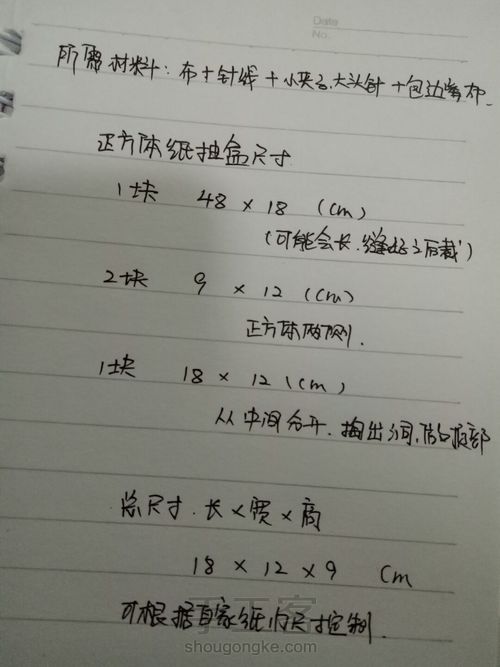 Date
No.
所需材料：布+针线+小夹子.大头针+包边布
正方体纸抽盒尺寸
1块 48×18 (cm)
(可能会长.缝好之后裁)
2块 9×12 (cm)
正方体两侧.
1块 18×12 (cm)
从中间分开.掏出洞,底部
总尺寸.长×宽×高
18×12×9 cm
可根据自家纸的尺寸定制.
手工客
shougongke.com